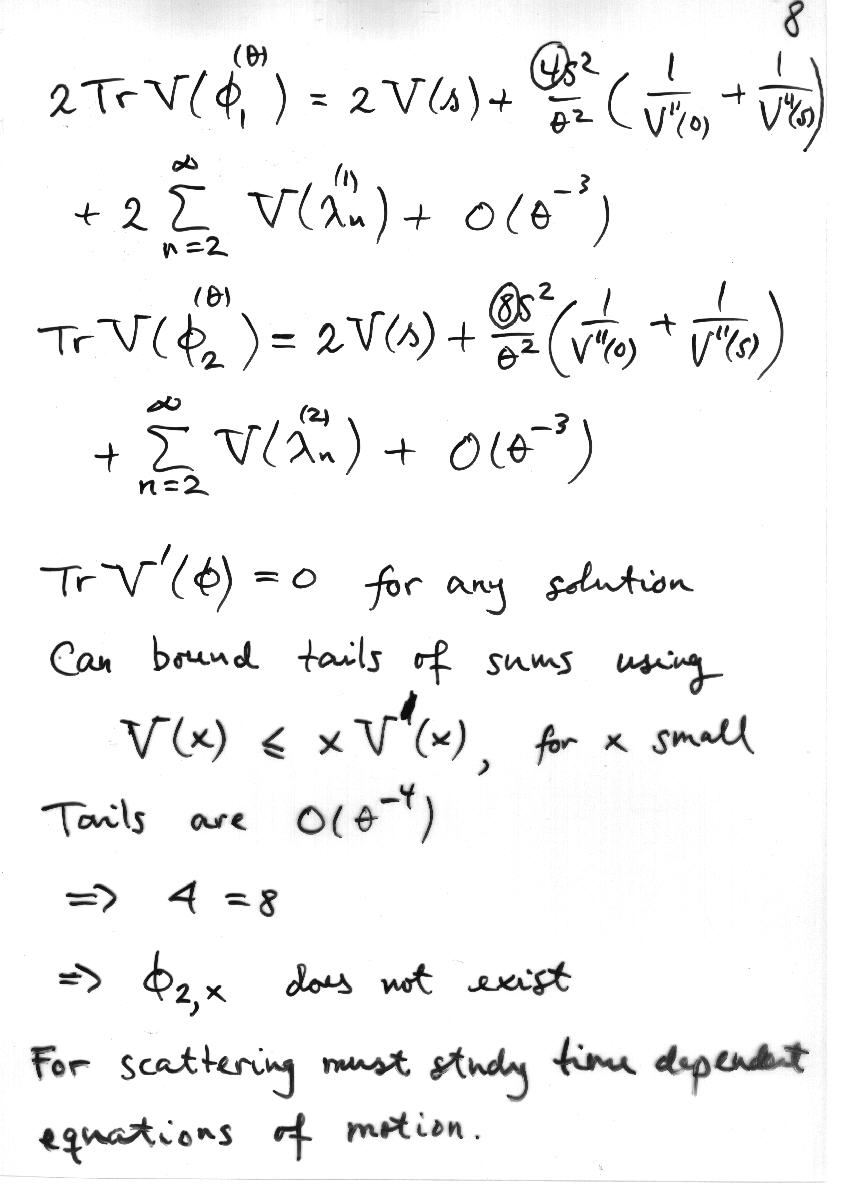 8
2 Tr V(ϕ₁^(θ)) = 2 V(s) + 4s²/θ² ( 1/V''(0) + 1/V''(s) )
+ 2 ∑_{n=2}^∞ V(λₙ^(1)) + O(θ⁻³)
Tr V(ϕ₂^(θ)) = 2 V(s) + 8s²/θ² ( 1/V''(0) + 1/V''(s) )
+ ∑_{n=2}^∞ V(λₙ^(2)) + O(θ⁻³)
Tr V'(ϕ) = 0 for any solution
Can bound tails of sums using
V(x) ≤ x V'(x), for x small
Tails are O(θ⁻⁴)
=> 4 = 8
=> ϕ₂,ₓ does not exist
For scattering must study time dependent
equations of motion.